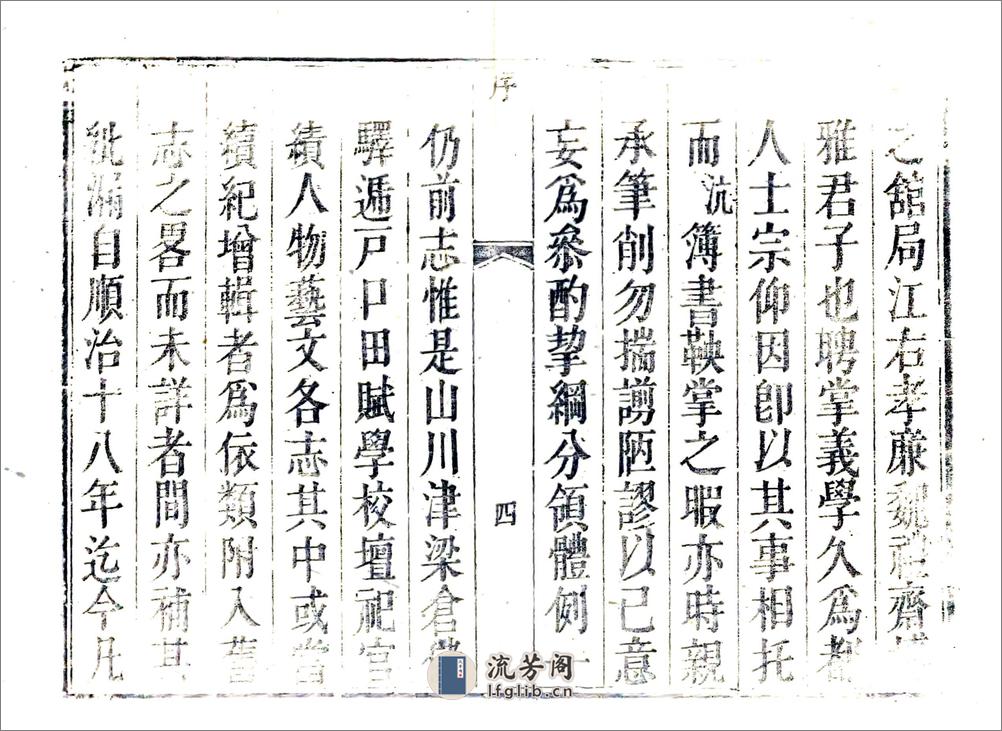 之舘局江右孝廉魏禮齋
雅君子也聘掌義學久爲都
人士宗仰因卽以其事相托
而沆簿書鞅掌之暇亦時親
承筆削勿揣謭陋謬以己意
妄爲叅酌挈綱分領體例一
序
四
仍前志惟是山川津梁倉
驛遞戸口田賦學校壇祀官
績人物藝文各志其中或當
續紀增輯者爲依類附入舊
志之畧而未詳者間亦補其
紕漏自順治十八年迄今凡
流芳阁
lfglib.cn